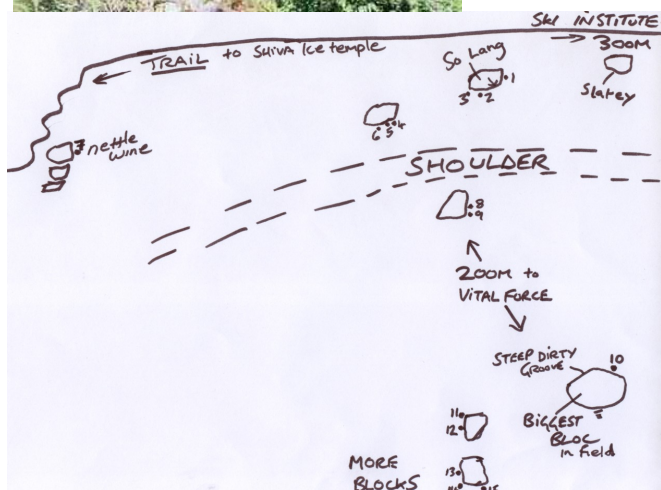 SKI INSTITUTE
300M
TRAIL to SHIVA Ice temple
So Lang
1
3 2
Slatey
6 5 4
7
nettle
wine
SHOULDER
8
9
200M to
VITAL FORCE
STEEP DIRTY
GROOVE
10
BIGGEST
BLOC
in field
11
12
MORE
BLOCKS
13